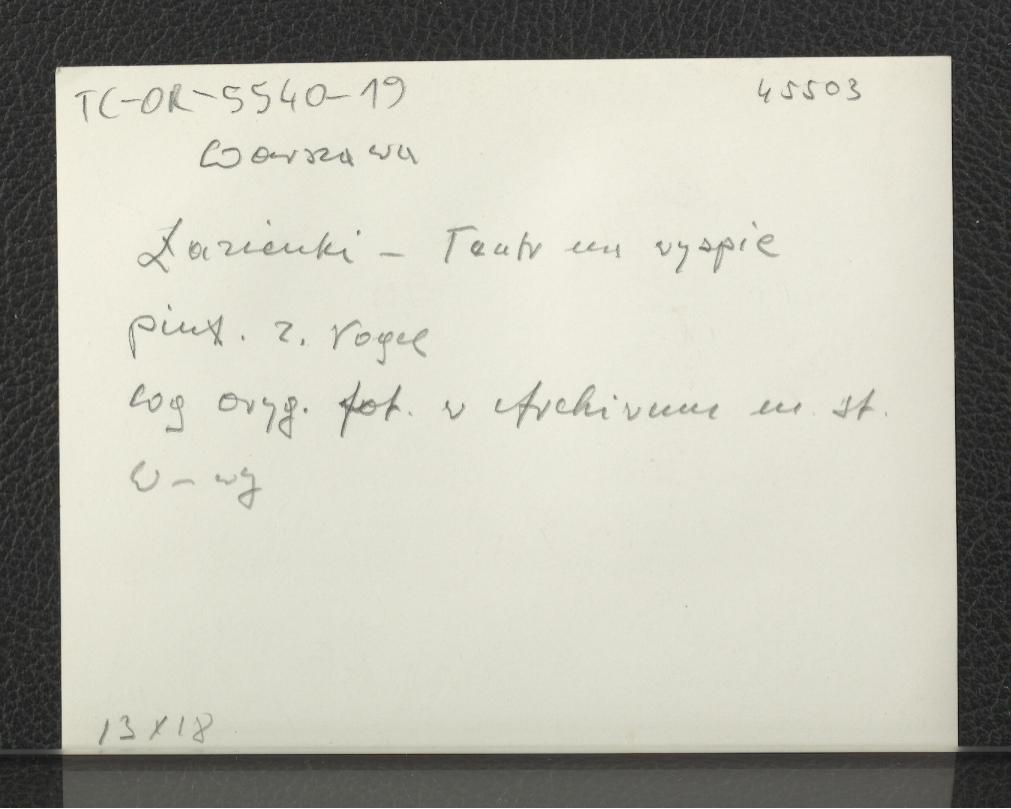 TC-OR-5540-19 45503
Warszawa
Łazienki – Teatr na wyspie
pinx. Z. Vogel
wg oryg. fot. w Archiwum m. st.
W-wy
13 x 18